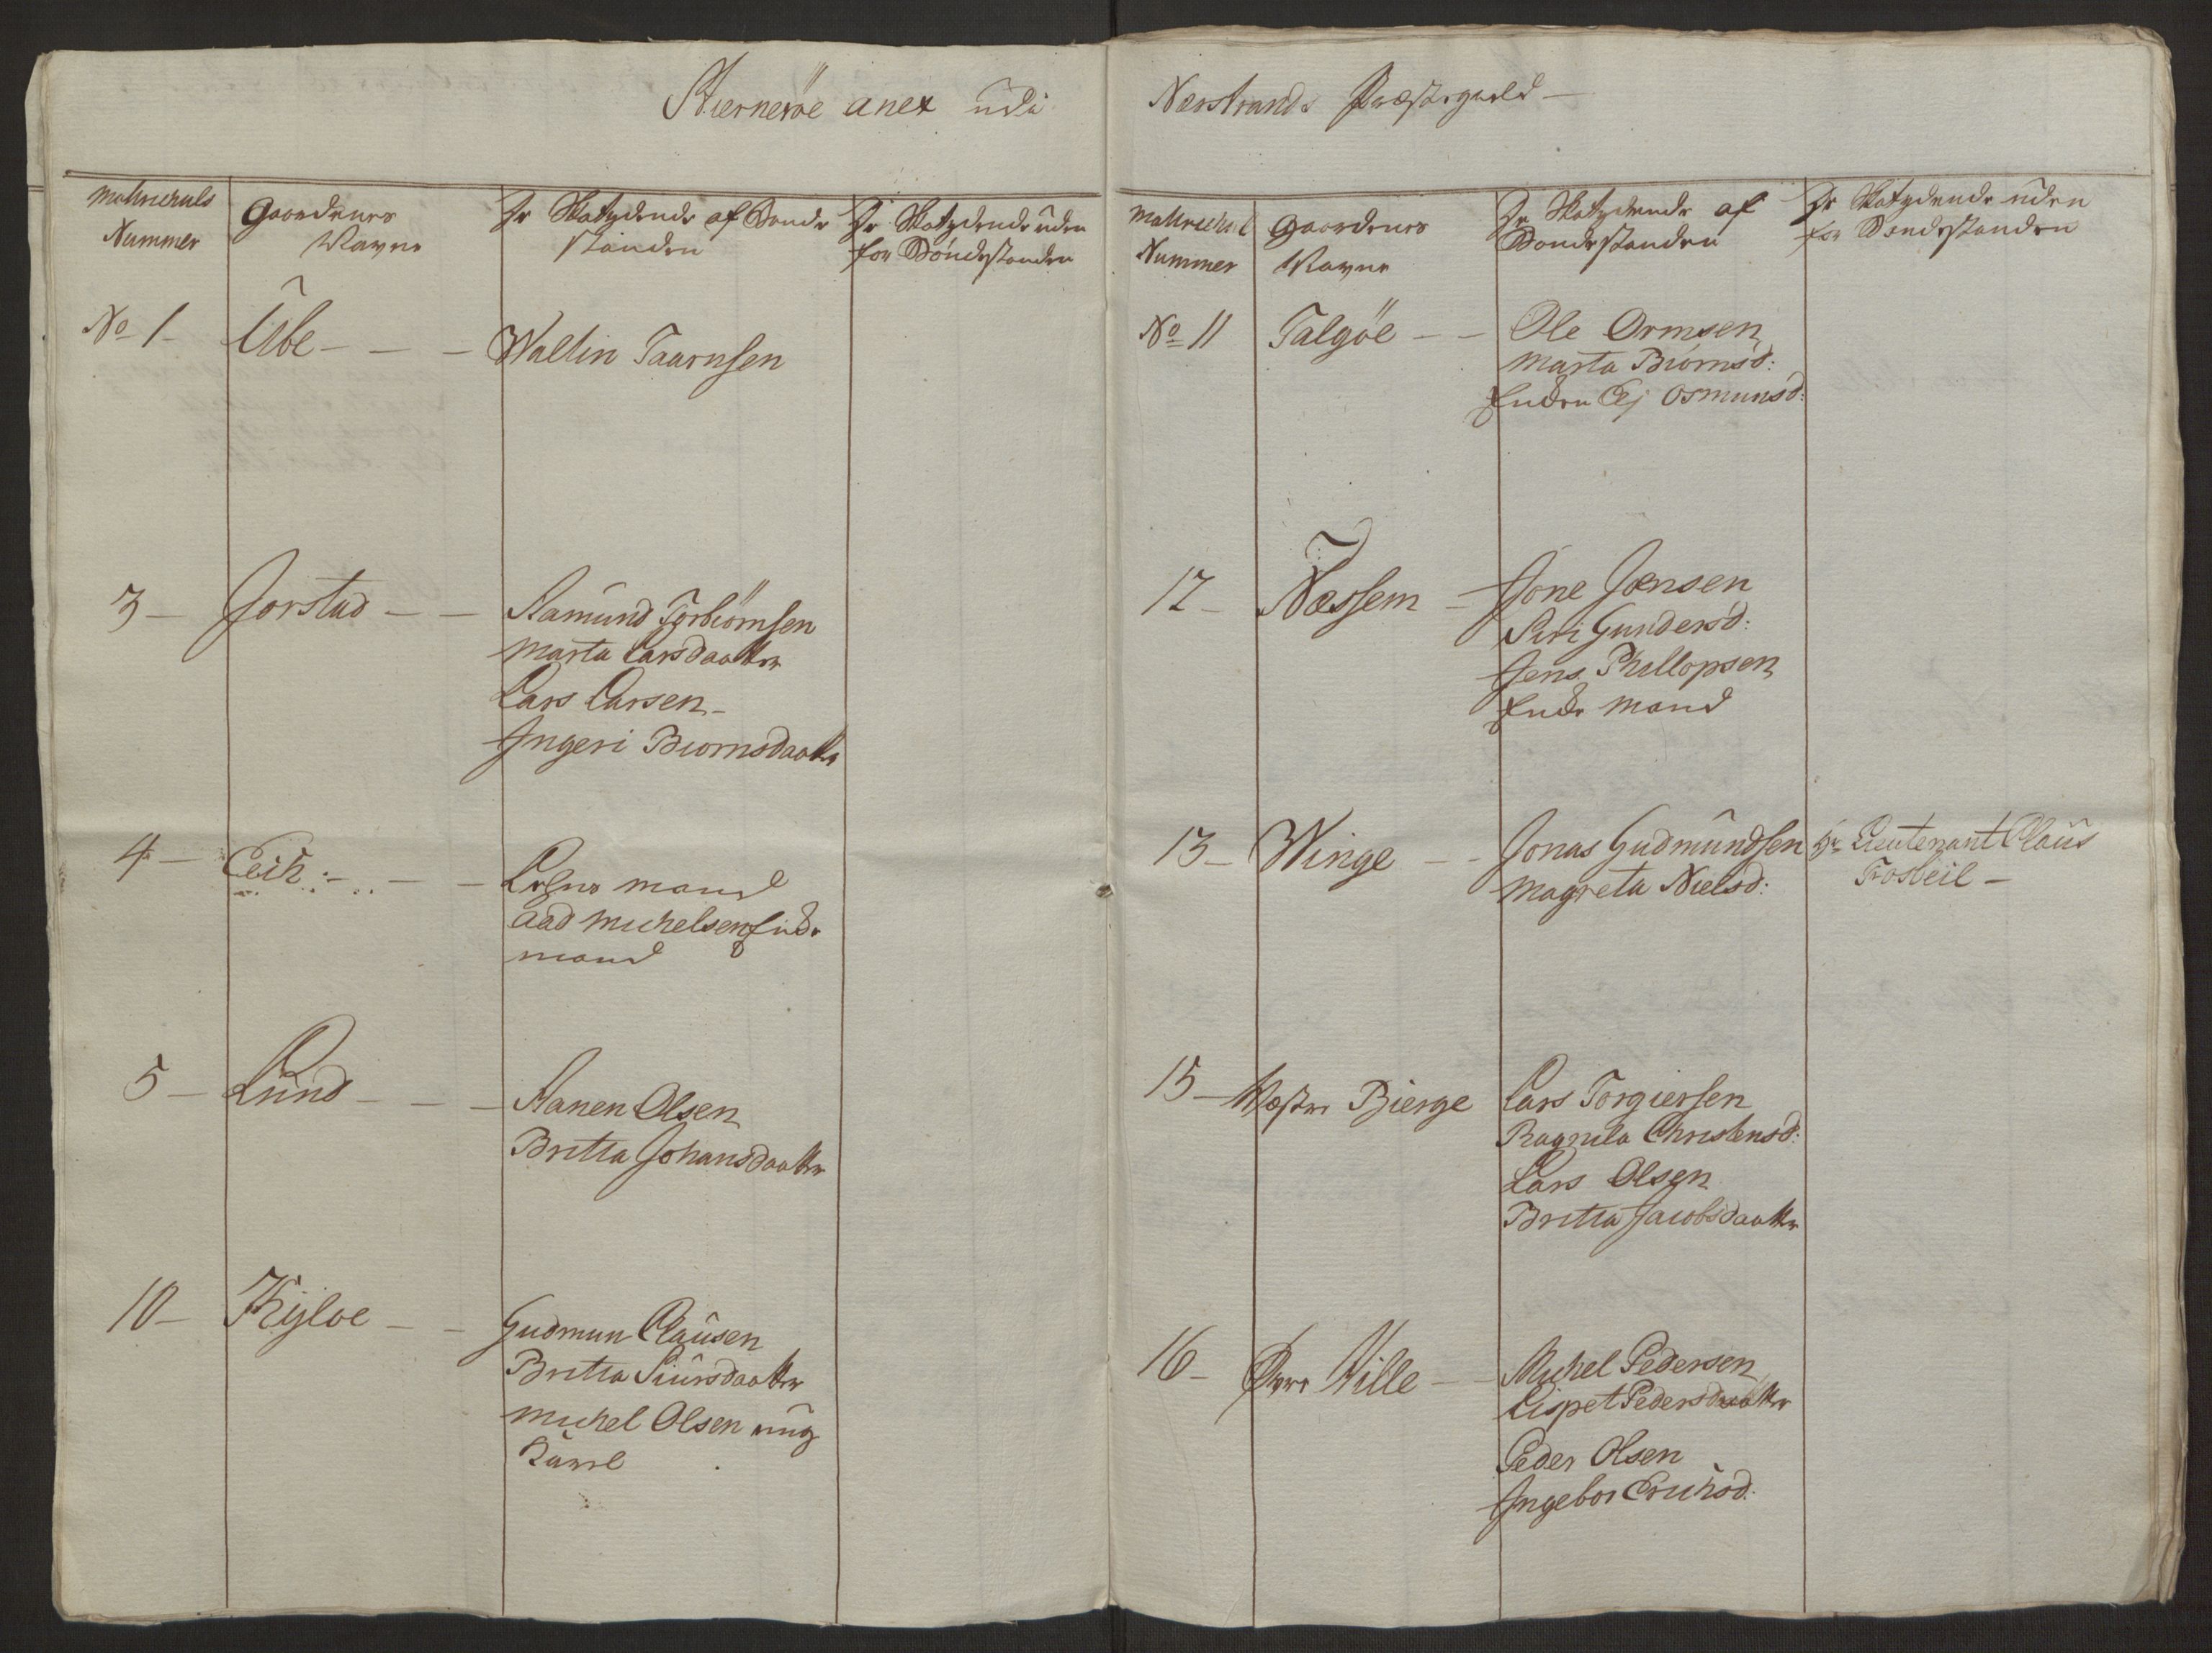 Stiernerøe anex udi
Matriculs
Nummer
Gaardenes
Navne
De Skatydende af Bonde
standen
De Skatydende uden
for Bondestanden
No 1 Ube - - - Waltin Taarnsen
3 - Jorstad - - Aamund Torbiörnsen
Marta Larsdaatter
Lars Larsen -
Ingeri Biornsdaatter
4 - Eeik - - - mand
Aad Michelsen Ende
mand
5 - Lund - - - Aanen Olsen
Britta Johansdaatter
10 - Kijloe - - Gudmun Clausen
Britta Siursdaatter
Michel Olsen ung
Karel
Nerstrands Præstegield -
Matricul
Nummer
Gaardenes
Navne
De Skatydende af
Bondestanden
De Skatydende uden
for Bondestanden
No 11 Talgöe - - Ole Ormsen
Marta Biornsd:
Enken Osmunsd:
12 - Nessem - Jone Jensen
Siri Gundersd:
Jens Phillopsen
Enke Mand
13 - Winge - - Jonas Gudmundsen Hr Lieutenant Claus
Magreta Nielsd: Frosteil -
15 - Westre Bierge Lars Torgiersen
Ragnila Christensd:
Lars Olsen
Britta Jacobsdaatter
16 - Øvre Hille - - Michel Pedersen
Lispet Pedersdaatter
Peder Olsen
Ingebor Erichsd: